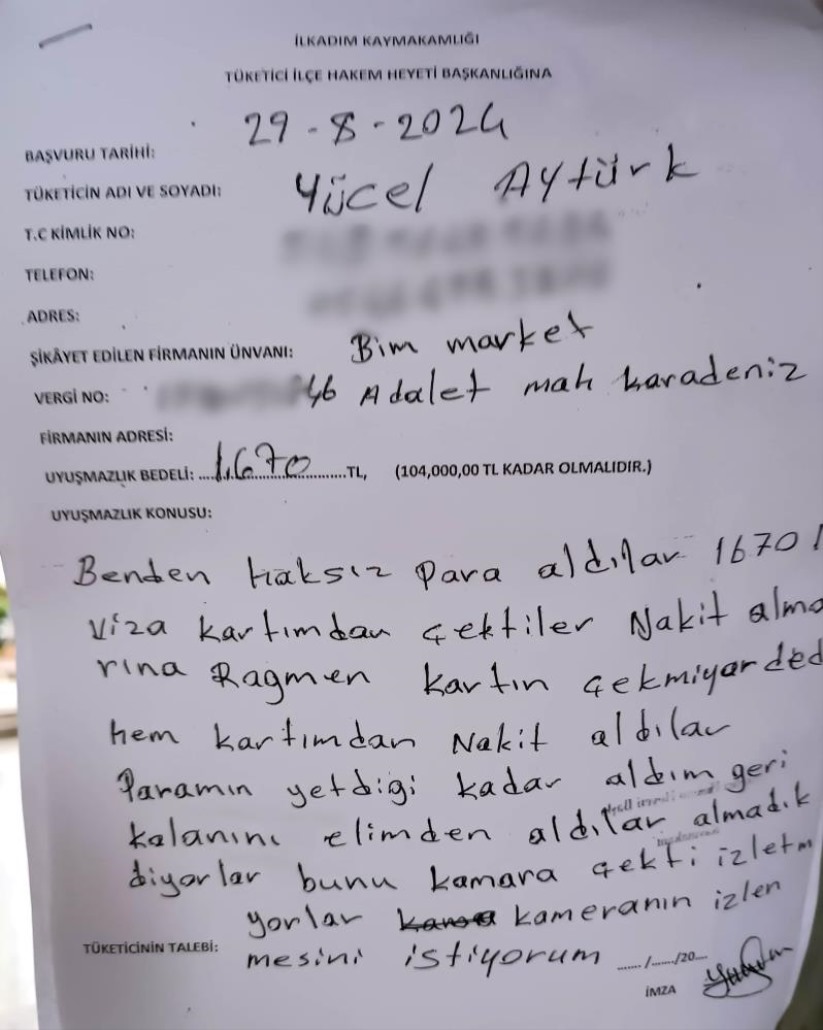 İLKADIM KAYMAKAMLIĞI
TÜKETİCİ İLÇE HAKEM HEYETİ BAŞKANLIĞINA
BAŞVURU TARİHİ: 29-8-2024
TÜKETİCİN ADI VE SOYADI: Yücel Aytürk
T.C KİMLİK NO:
TELEFON:
ADRES:
ŞİKÂYET EDİLEN FİRMANIN ÜNVANI: Bim market
VERGİ NO: 46 Adalet mah karadeniz
FİRMANIN ADRESİ:
UYUŞMAZLIK BEDELİ: 1.670 TL, (104,000,00 TL KADAR OLMALIDIR.)
UYUŞMAZLIK KONUSU:
Benden haksız para aldılar 1670
Viza kartımdan çektiler Nakit alma
rına Ragmen kartın çekmiyor ded
hem kartımdan Nakit aldılar
Paramın yetdigi kadar aldım geri
kalanını elimden aldılar almadık
diyorlar bunu kamara çekti izletm
yorlar kameranın izlen
TÜKETİCİNİN TALEBİ: mesini istiyorum ....../....../20....
İMZA